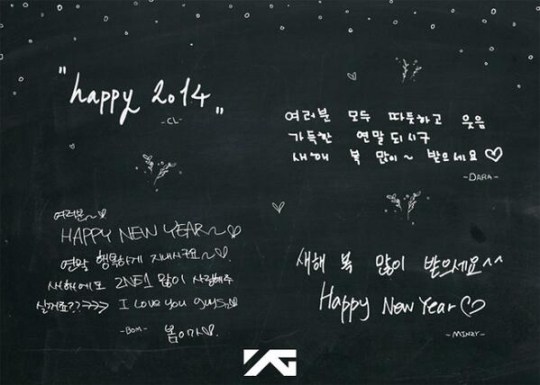 "happy 2014"
-CL-
여러분 모두 따뜻하고 웃음
가득한 연말 되시구
새해 복 많이~ 받으세요♡
-DARA-
여러분~♡
HAPPY NEW YEAR~♡
연말 행복하게 지내시구요~♡.
새해에도 2NE1 많이 사랑해주
실꺼죠?? I love you guys,
-BOM- 봄이가♡.
새해 복 많이 받으세요^^
Happy New Year♡
-MINZY-
YG